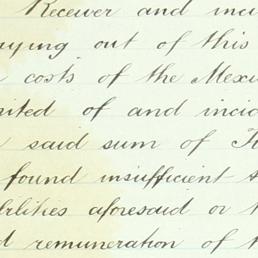 Receiver and inci
aying out of this
costs of the Mexic
nited of and incid
said sum of
found insufficient
bilities aforesaid or t
d remuneration of t